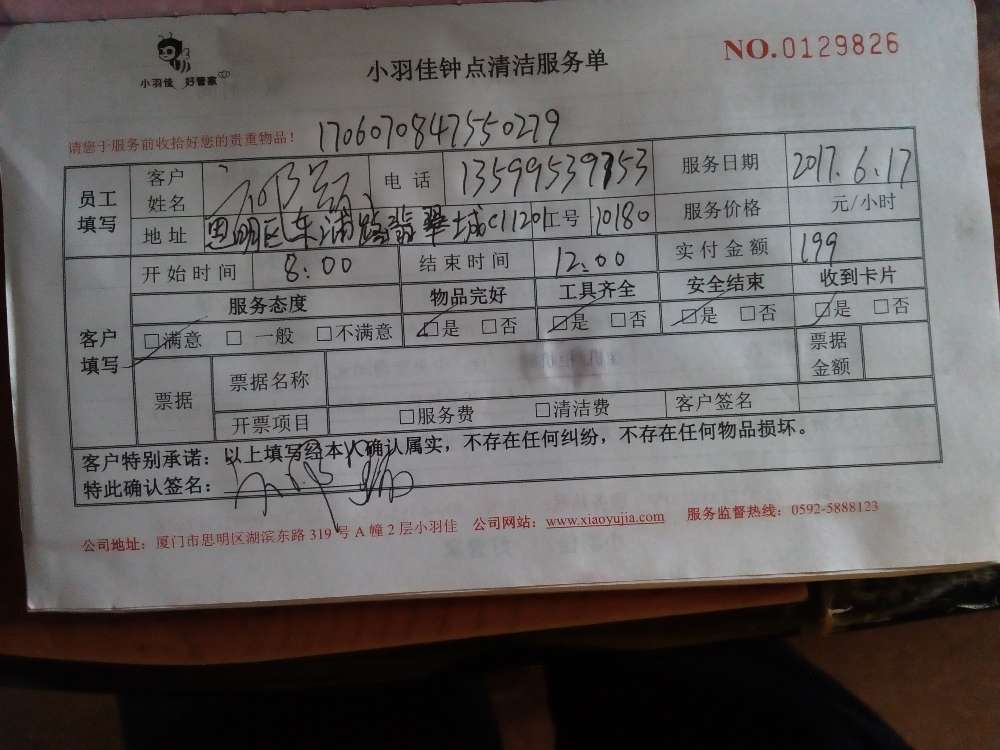 小羽佳 好管家
小羽佳钟点清洁服务单
NO.0129826
请您于服务前收拾好您的贵重物品！ 170607084755027​9
员工填写 客户姓名 电话 13599539753 服务日期 2017.6.17
地址 思明区东浦路翡翠城C11201 工号 10180 服务价格 元/小时
客户填写 开始时间 8:00 结束时间 12:00 实付金额 199
服务态度 物品完好 工具齐全 安全结束 收到卡片
□满意 □一般 □不满意 □是 □否 □是 □否 □是 □否 □是 □否
票据 票据名称 票据金额
开票项目 □服务费 □清洁费 客户签名
客户特别承诺：以上填写经本人确认属实，不存在任何纠纷，不存在任何物品损坏。
特此确认签名：
公司地址：厦门市思明区湖滨东路319号A幢2层小羽佳 公司网站：www.xiaoyujia.com 服务监督热线：0592-5888123